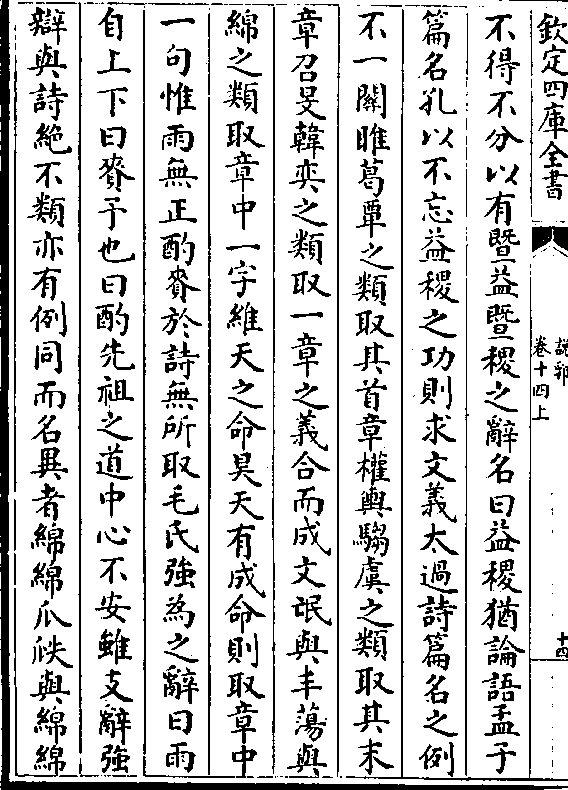 欽定四庫全書
說郛
卷十四上
十四
不得不分以有暨益暨稷之辭名曰益稷猶論語孟子
篇名孔以不忘益稷之功則求文義太過詩篇名之例
不一關雎葛覃之類取其首章權輿騶虞之類取其末
章召旻韓奕之類取一章之義合而成文氓與丰蕩與
綿之類取章中一字維天之命昊天有成命則取章中
一句惟雨無正酌賚於詩無所取毛氏強為之辭曰雨
自上下曰賚予也曰酌先祖之道中心不安雖支辭強
辯與詩絶不類亦有例同而名異者綿綿瓜瓞與綿綿